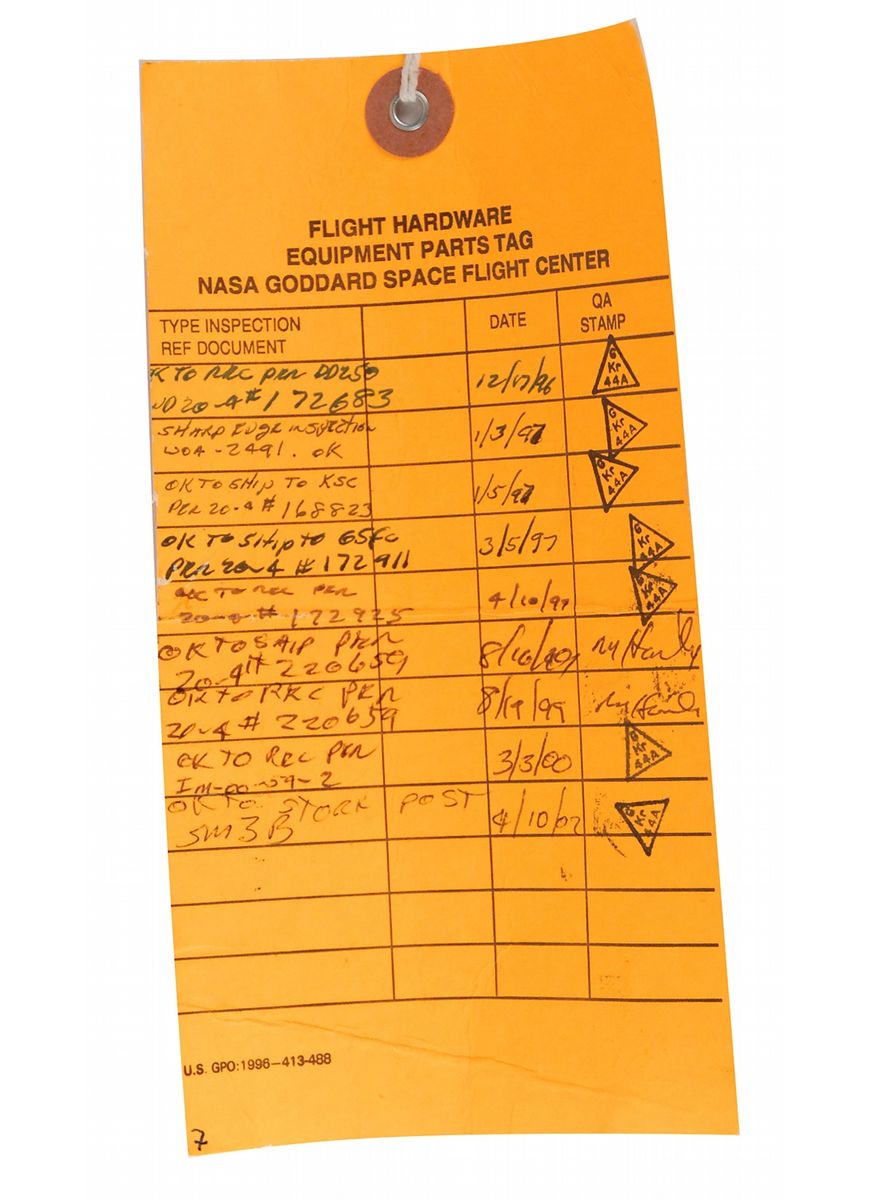 FLIGHT HARDWARE
EQUIPMENT PARTS TAG
NASA GODDARD SPACE FLIGHT CENTER
TYPE INSPECTION
REF DOCUMENT
DATE
QA
STAMP
K TO REC PER DD250
20-4 # 172683
12/17/96
6
Kr
44A
SHARP EDGE INSPECTION
WOA-2491. OK
1/3/97
6
Kr
44A
OK TO SHIP TO KSC
PER 20-4 # 168823
1/5/97
6
Kr
44A
OK TO SHIP TO GSFC
PER 20-4 # 172911
3/5/97
6
Kr
44A
OK TO REC PER
20-4 # 172925
4/10/97
6
Kr
44A
OK TO SHIP PER
20-4 # 220659
OK TO REC PER
20-4 # 220659
8/19/99
OK TO REC PER
3/3/00
6
Kr
44A
OK TO STORE POST
SM3B
4/10/02
6
Kr
44A
U.S. GPO:1996-413-488
7